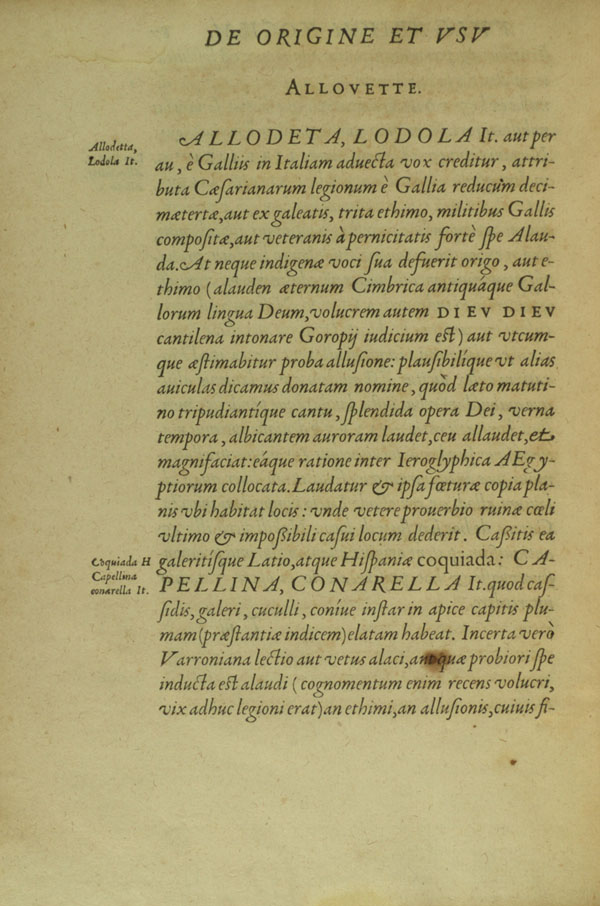 DE ORIGINE ET VSV
ALLOVETTE.
Allodetta,
Lodola It.
ALLODETA, LODOLA It. aut per
au, è Galliis in Italiam aduecta vox creditur, attri-
buta Cæsarianarum legionum è Gallia reducũm deci-
mætertæ, aut ex galeatis, trita ethimo, militibus Gallis
compositæ, aut veteranis à pernicitatis fortè spe Alau-
da. At neque indigenæ voci sua defuerit origo, aut e-
thimo (alauden æternum Cimbrica antiquáque Gal-
lorum lingua Deum, volucrem autem DIEV DIEV
cantilena intonare Goropij iudicium est) aut vtcum-
que æstimabitur proba allusione: plausibilíque vt alias
auiculas dicamus donatam nomine, quòd læto matuti-
no tripudiantíque cantu, splendida opera Dei, verna
tempora, albicantem auroram laudet, ceu allaudet, et
magnifaciat: eáque ratione inter Ieroglyphica AEgy-
ptiorum collocata. Laudatur & ipsa fœturæ copia pla-
nis vbi habitat locis: vnde vetere prouerbio ruinæ cœli
vltimo & impoßibili casui locum dederit. Caßitis ea
Coquiada H
Capellina
conarella It.
galeritísque Latio, atque Hispaniæ coquiada: CA-
PELLINA, CONARELLA It. quod cas-
sidis, galeri, cuculli, coníue instar in apice capitis plu-
mam (præstantiæ indicem) elatam habeat. Incerta verò
Varroniana lectio aut vetus alaci, quæ probiori spe
inducta est alaudi (cognomentum enim recens volucri,
vix adhuc legioni erat) an ethimi, an allusionis, cuiuis fi-